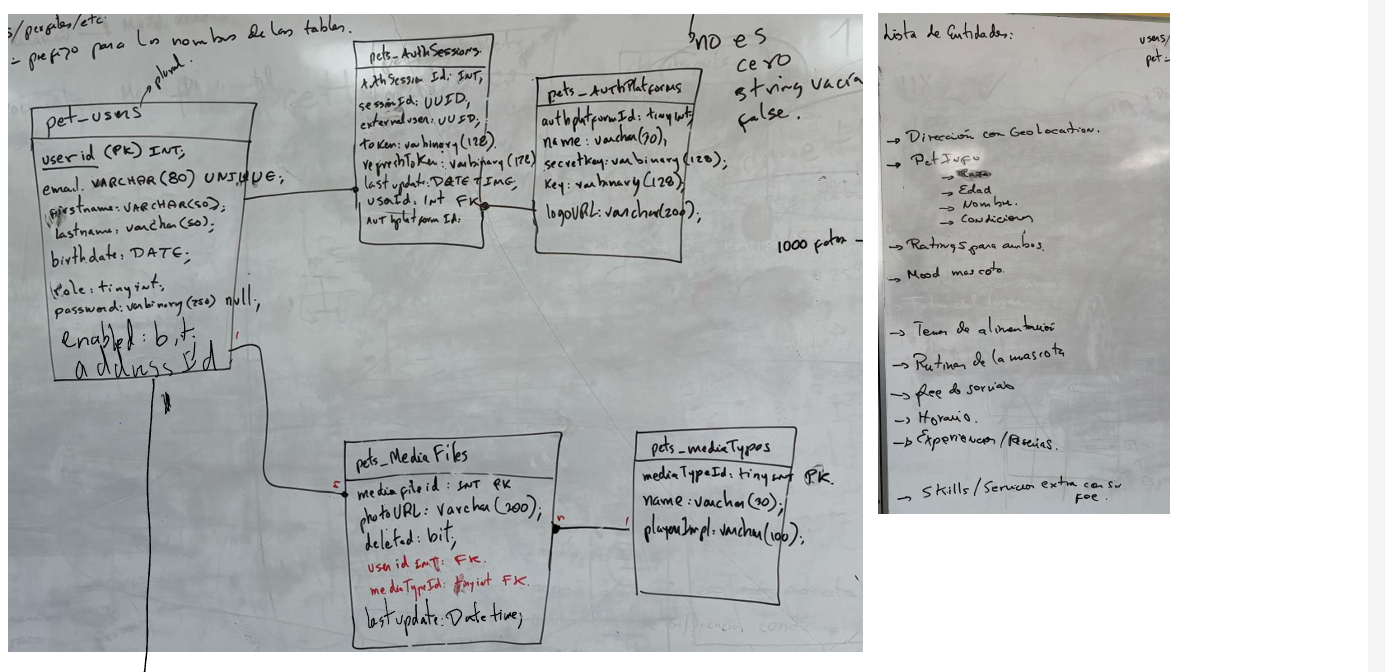 s/perfiles/etc.
- prefijo para los nombres de las tablas.
plural.
pet_users
userid (PK) INT;
email. VARCHAR(80) UNIQUE;
firstname: VARCHAR(50);
lastname: varchar(50);
birthdate: DATE;
role: tinyint;
password: varbinary(250) null;
enabled: bit;
addressId
pets_AuthSessions.
AuthSession Id: INT;
sessionId: UUID;
externaluser: UUID;
token: varbinary(128).
refreshToken: varbinary(128)
lastupdate: DATETIME;
userId: INT FK
AuThplatform Id:
pets_AuthPlatforms
authplatformId: tinyint;
name: varchar(30);
secretkey: varbinary(128);
key: varbinary(128);
logoURL: varchar(200);
no es
cero
string vacía
false.
1000 fotos -
1
pets_MediaFiles
mediafileid: INT PK
photoURL: varchar(200);
deleted: bit;
userid INT: FK.
mediaTypeId: tinyint FK.
lastupdate: Datetime;
n
1
pets_mediaTypes
mediaTypeId: tinyint PK.
name: varchar(30);
playerImpl: varchar(100);
Lista de Entidades:
users/
pet-
→ Dirección con GeoLocation.
→ Pet Info
→ Raza
→ Edad
→ Nombre.
→ Condiciones
→ Ratings para ambos.
→ Mood mascota.
→ Temas de alimentación
→ Rutinas de la mascota
→ fee de servicio
→ Horario.
→ Experiencias/Reseñas.
→ Skills/Servicios extra con su
fee.